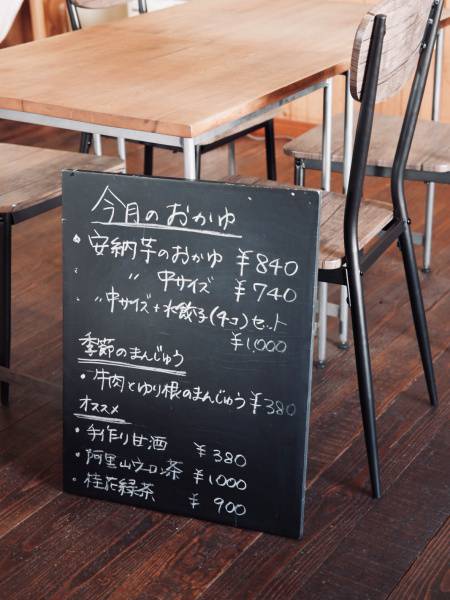 今月のおかゆ
・安納芋のおかゆ ¥840
〃 中サイズ ¥740
〃中サイズ+水餃子(4コ)セット
¥1,000
季節のまんじゅう
・牛肉とゆり根のまんじゅう ¥380
オススメ
・手作り甘酒 ¥380
・阿里山ウーロン茶 ¥1000
・桂花緑茶 ¥900